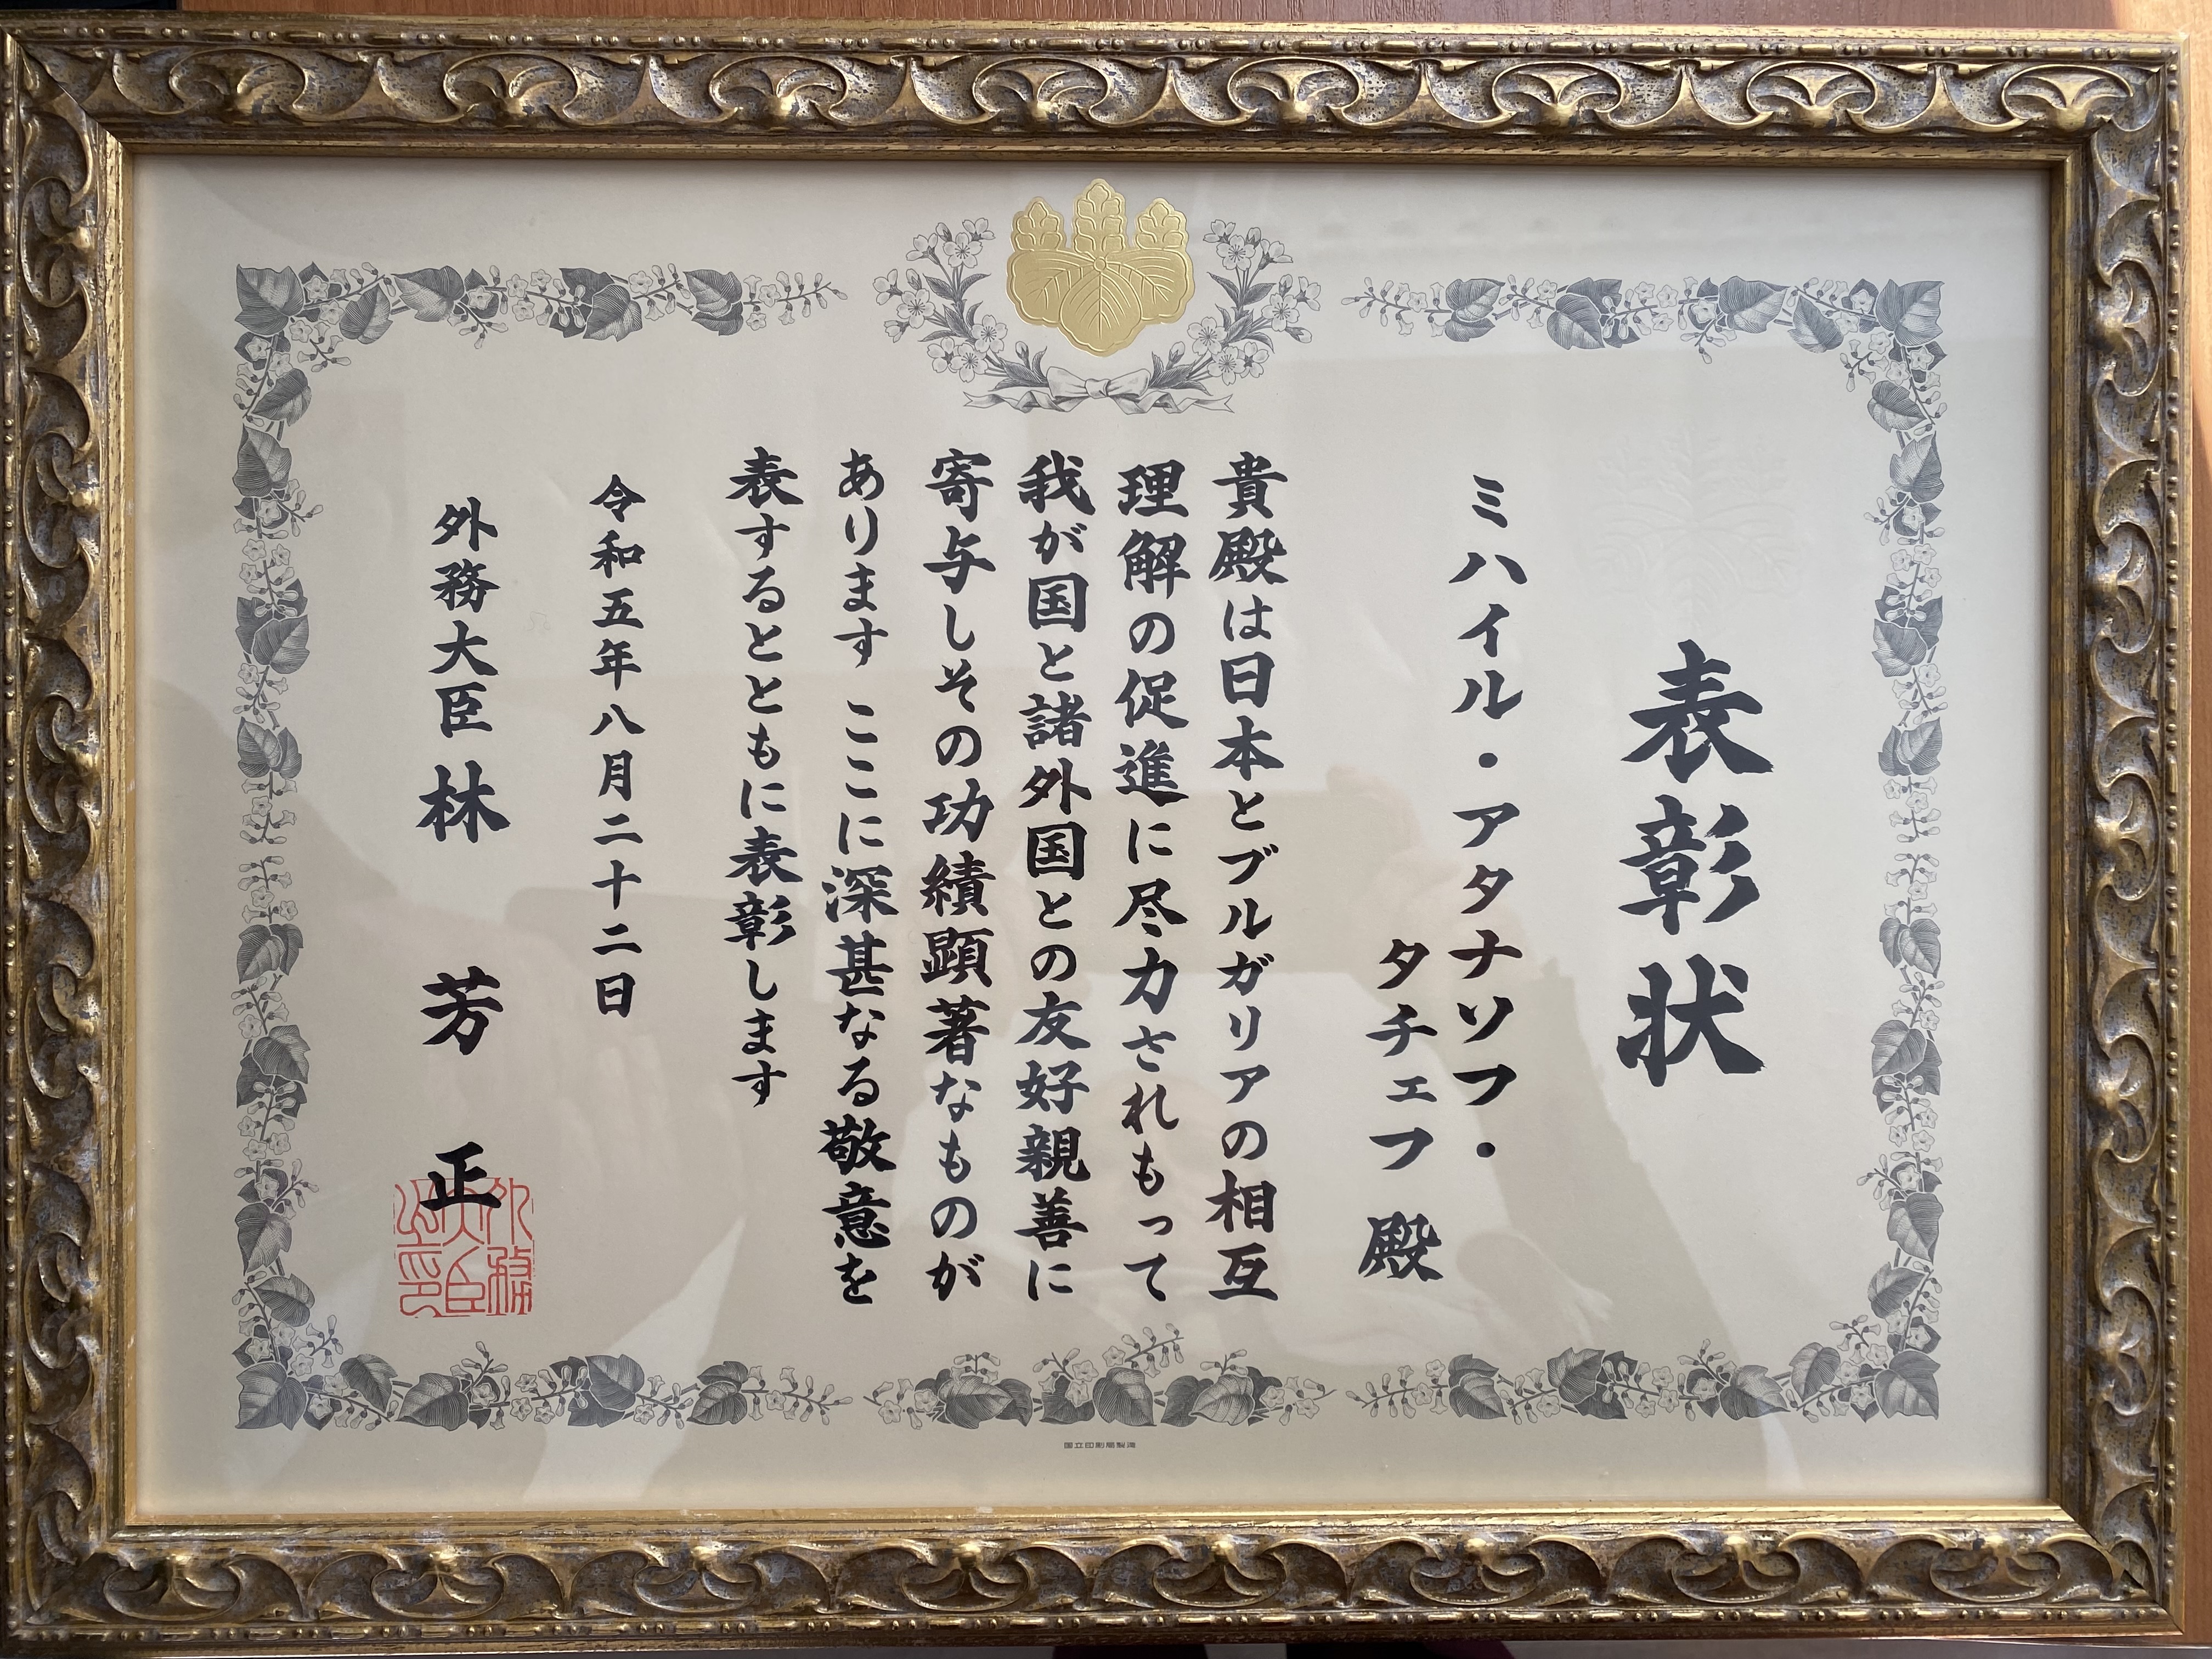 表彰状
ミハイル・アタナソフ・
タチェフ 殿
貴殿は日本とブルガリアの相互
理解の促進に尽力されもって
我が国と諸外国との友好親善に
寄与しその功績顕著なものが
あります ここに深甚なる敬意を
表するとともに表彰します
令和五年八月二十二日
外務大臣 林 芳 正
外務大臣之印
国立印刷局製造